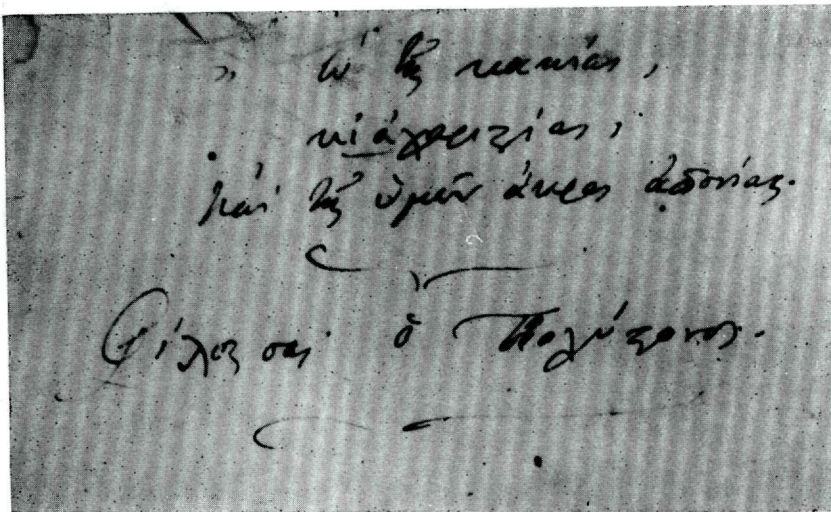 ὢ τῆς κακίας,
κὶ ἀχρειίας,
καὶ τῆς ὑμῶν ἄκρας ἀπονίας.
Φίλος σας ὁ Πολύξενος.